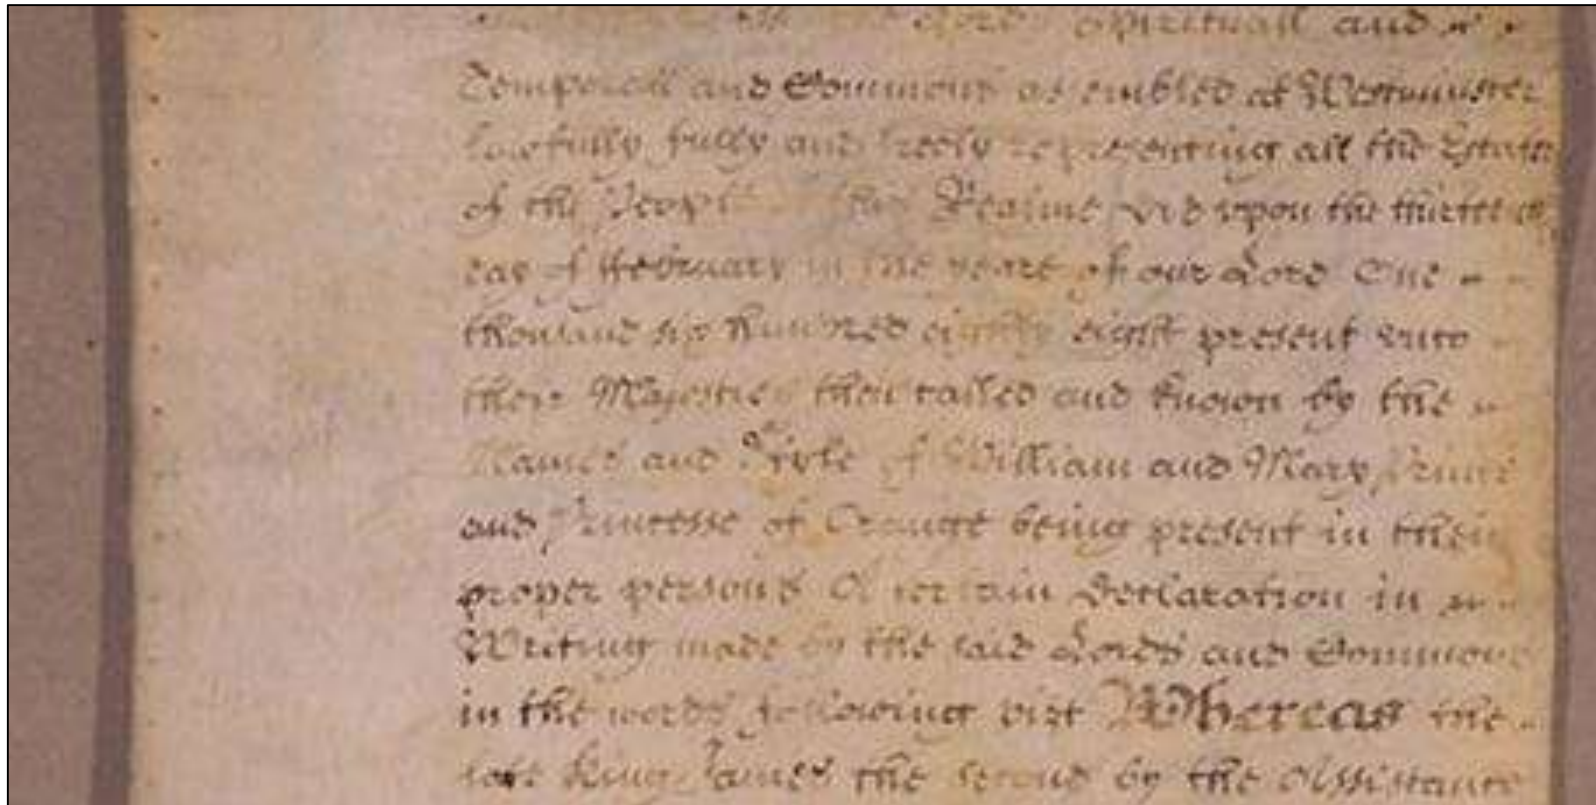 Lords Spirituall and
Temporall and Commons assembled at Westminster
lawfully fully and freely representing all the Estates
of the People of this Realme did upon the thirteenth
day of ffebruary in the yeare of our Lord One
thousand six hundred eighty eight present unto
their Majesties then called and known by the
Names and Style of William and Mary Prince
and Princesse of Orange being present in their
proper persons A certain Declaration in
Writing made by the said Lords and Commons
in the words following vizt Whereas the
late King James the second by the Assistance